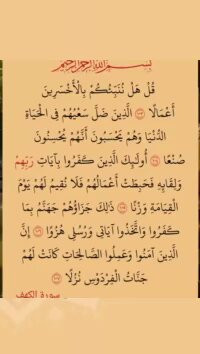 بسم الله الرحمن الرحيم
قُلْ هَلْ نُنَبِّئُكُمْ بِالْأَخْسَرِينَ
أَعْمَالًا ۝ الَّذِينَ ضَلَّ سَعْيُهُمْ فِي الْحَيَاةِ
الدُّنْيَا وَهُمْ يَحْسَبُونَ أَنَّهُمْ يُحْسِنُونَ
صُنْعًا ۝ أُولَٰئِكَ الَّذِينَ كَفَرُوا بِآيَاتِ رَبِّهِمْ
وَلِقَائِهِ فَحَبِطَتْ أَعْمَالُهُمْ فَلَا نُقِيمُ لَهُمْ يَوْمَ
الْقِيَامَةِ وَزْنًا ۝ ذَٰلِكَ جَزَاؤُهُمْ جَهَنَّمُ بِمَا
كَفَرُوا وَاتَّخَذُوا آيَاتِي وَرُسُلِي هُزُوًا ۝ إِنَّ
الَّذِينَ آمَنُوا وَعَمِلُوا الصَّالِحَاتِ كَانَتْ لَهُمْ
جَنَّاتُ الْفِرْدَوْسِ نُزُلًا ۝
سورة الكهف